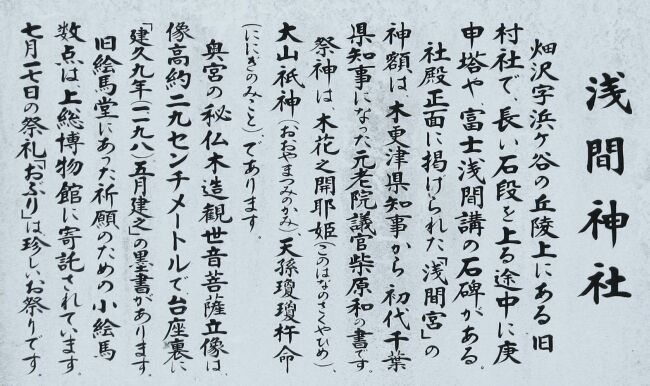 浅間神社
畑沢字浜ケ谷の丘陵上にある旧
村社で、長い石段を上る途中に庚
申塔や、富士浅間講の石碑がある。
社殿正面に掲げられた「浅間宮」の
神額は、木更津県知事から初代千葉
県知事になった元老院議官柴原和の書です。
祭神は、木花之開耶姫(このはなのさくやひめ)、
大山祇神(おおやまつみのかみ)、天孫瓊瓊杵命
(ににぎのみこと)、であります。
奥宮の秘仏木造観世音菩薩立像は、
像高約二九センチメートルで、台座裏に
「建久九年(一一九八)五月建之」の墨書があります。
旧絵馬堂にあった祈願のための小絵馬
数点は上総博物館に寄託されています。
七月一七日の祭礼「おぶり」は、珍しいお祭りです。